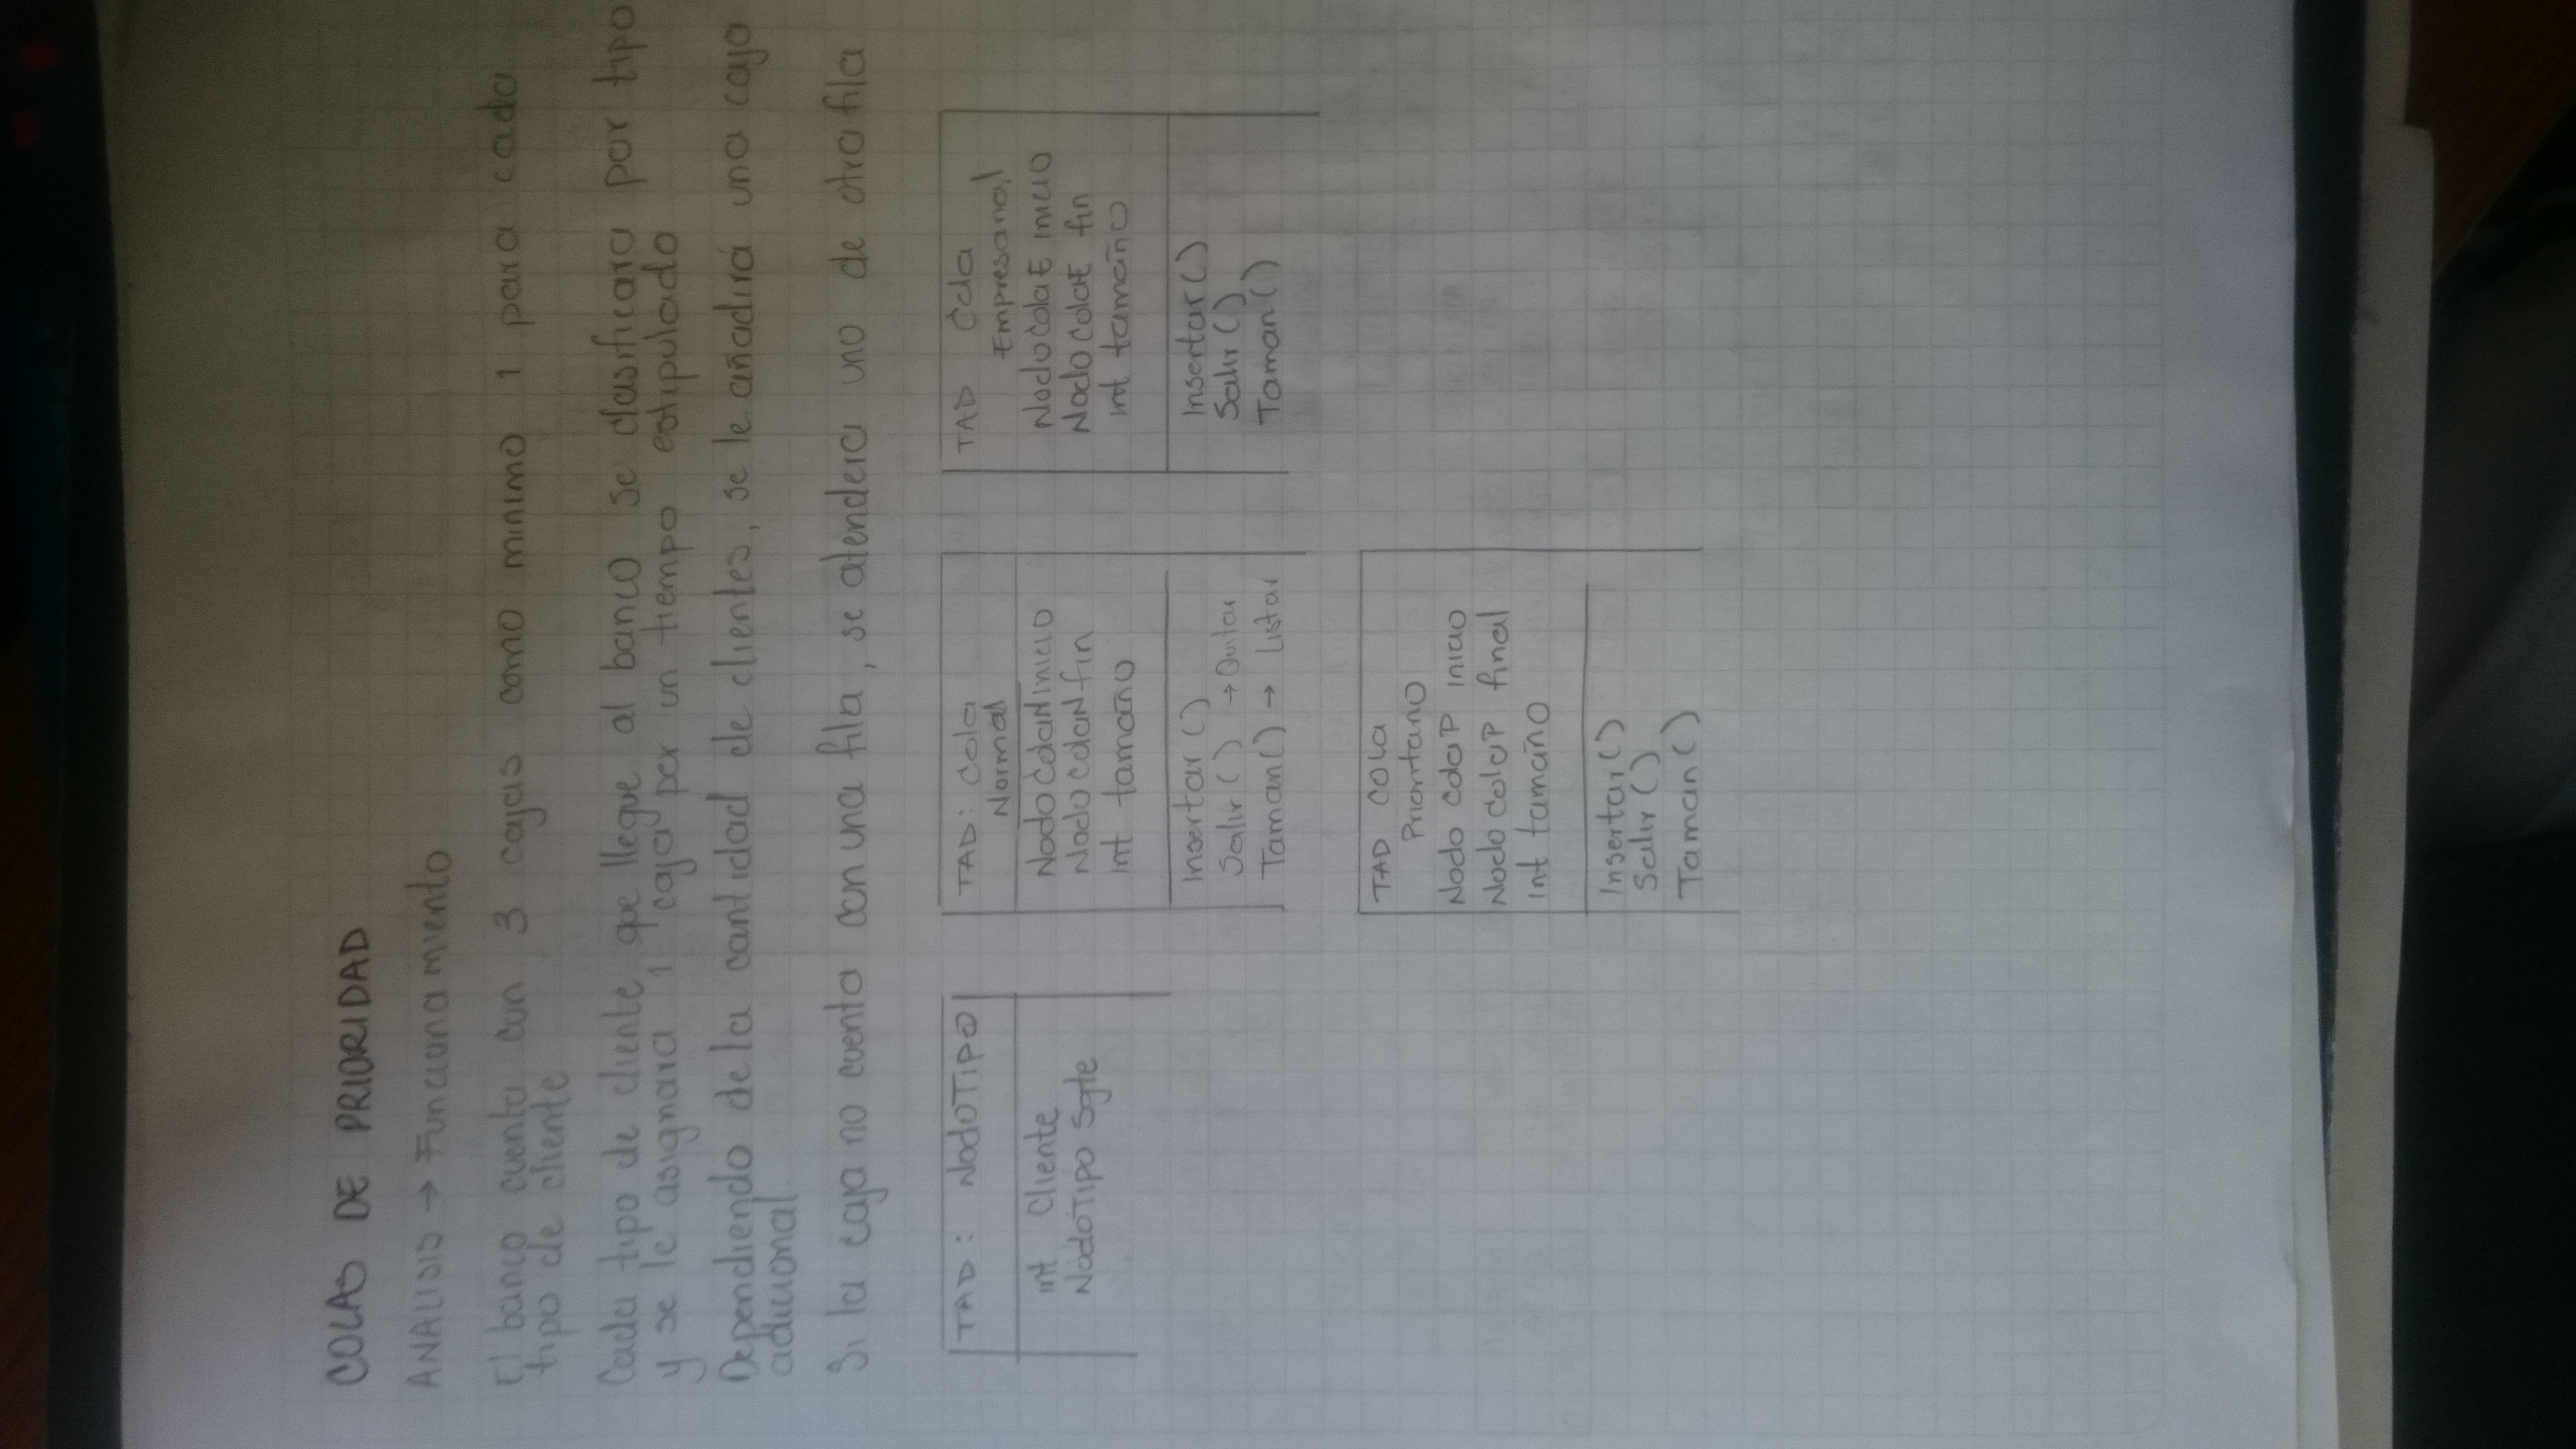 COLAS DE PRIORIDAD
ANALISIS → Funcionamiento
El banco cuenta con 3 cajas como minimo 1 para cada
tipo de cliente
Cada tipo de cliente que llegue al banco se clasificara por tipo
y se le asignara 1 caja por un tiempo estipulado
Dependiendo de la cantidad de clientes, se le añadirá una caja
adicional
Si la caja no cuenta con una fila, se atendera uno de otra fila
TAD: NodoTipo
int Cliente
NodoTipo Sgte
TAD: Cola
Normal
NodoColaN inicio
NodoColaN fin
int tamaño
Insertar ()
Salir () → Quitar
Taman() → Listar
TAD Cola
Empresarial
NodoColaE inicio
NodoColaE fin
int tamaño
Insertar ()
Salir ()
Taman ()
TAD Cola
Prioritario
Nodo ColaP inicio
Nodo ColaP final
int tamaño
Insertar ()
Salir ()
Taman ()